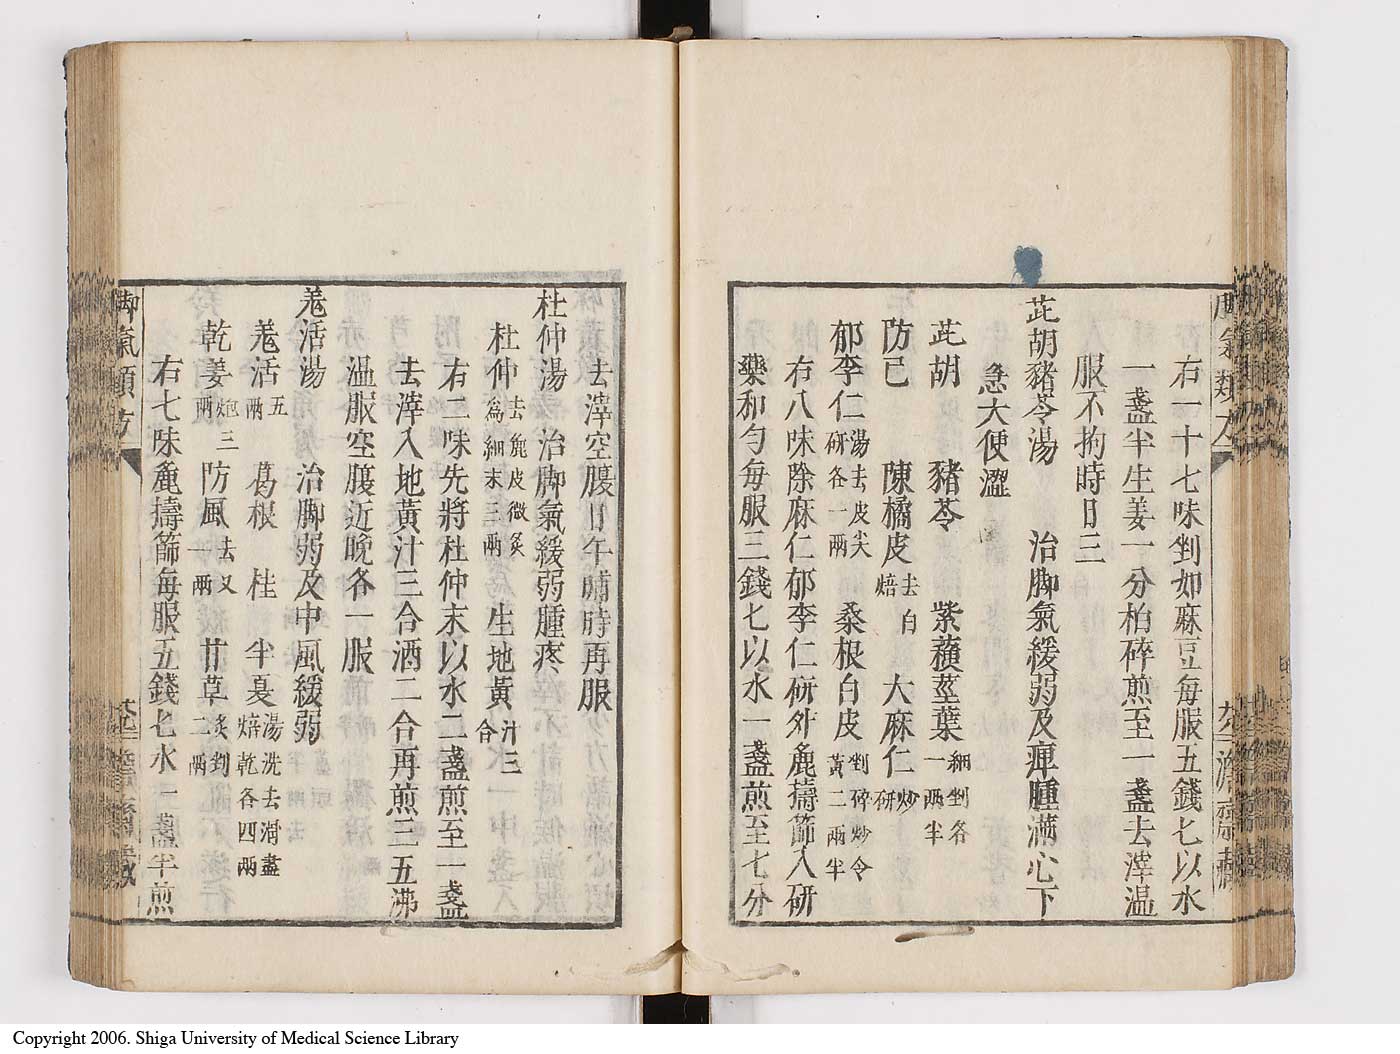 右一十七味剉如麻豆每服五錢匕以水
一盞半生姜一分柏碎煎至一盞去滓温
服不拘時日三
茈胡豬苓湯　治脚氣緩弱及痺腫滿心下
急大便澀
茈胡　豬苓　紫蘓莖葉細剉各一兩半
防己　陳橘皮去白焙　大麻仁炒研
郁李仁湯去皮尖研各一兩　桑根白皮剉碎炒令黃二兩半
右八味除麻仁郁李仁研外麁擣篩入研
藥和勻每服三錢匕以水一盞煎至七分
去滓空腹日午晡時再服
杜仲湯　治脚氣緩弱腫疼
杜仲去麁皮微炙爲細末三兩　生地黃汁三合
右二味先將杜仲末以水二盞煎至一盞
去滓入地黃汁三合酒二合再煎三五沸
温服空腹近晚各一服
羗活湯　治脚弱及中風緩弱
羗活五兩　葛根　桂　半夏湯洗去滑盡焙乾各四兩
乾姜炮三兩　防風去叉一兩　甘草炙剉二兩
右七味麁擣篩每服五錢匕水一盞半煎
脚氣類方
Copyright 2006. Shiga University of Medical Science Library